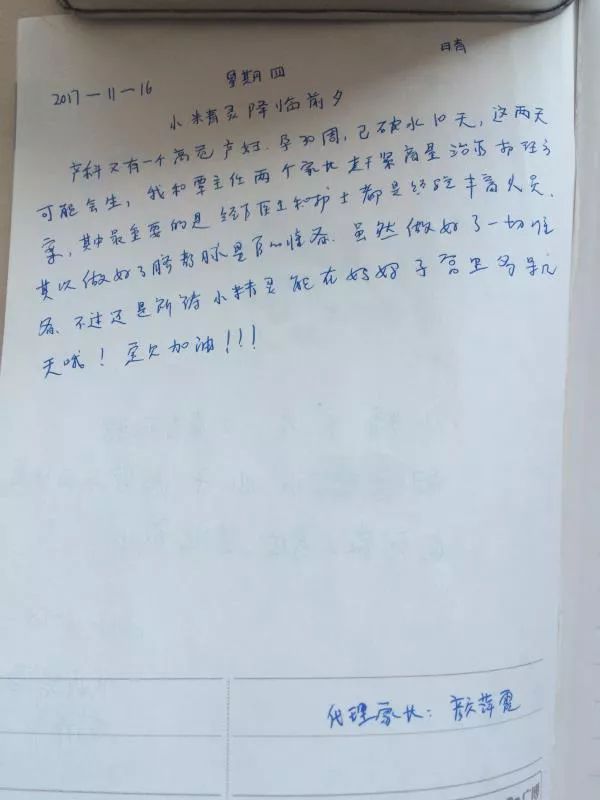 晴
2017-11-16 星期四
小精灵降临前夕
产科又有一个高危产妇.孕30周,已破水10天,这两天
可能会生,我和覃主任两个家长赶紧商量治疗护理方
案,其中最重要的是 和护士都是经验丰富人员.
其次做好了脐 准备.虽然做好了一切准
备.不过还是 小精灵能在妈妈子宫里多呆几
天哦! 加油!!!
代理家长:颜萍霞